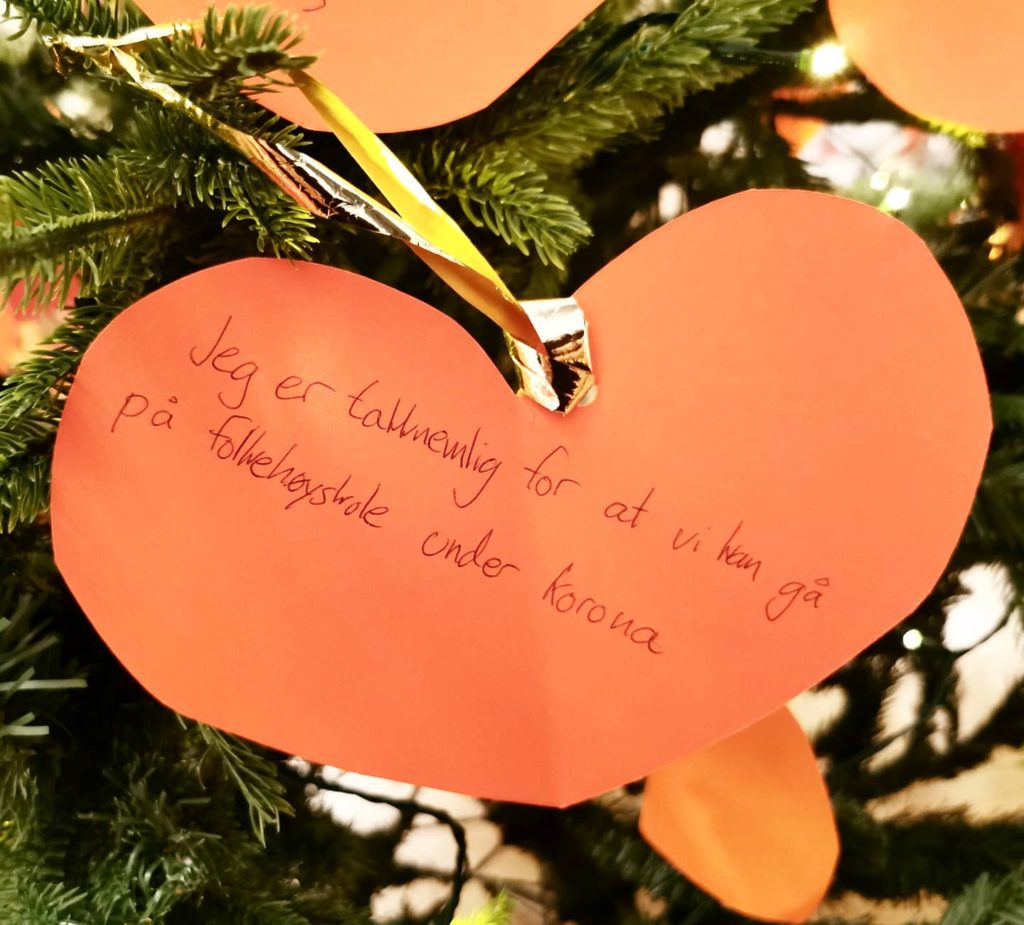 Jeg er takknemlig for at vi kan gå
på folkehøyskole under korona